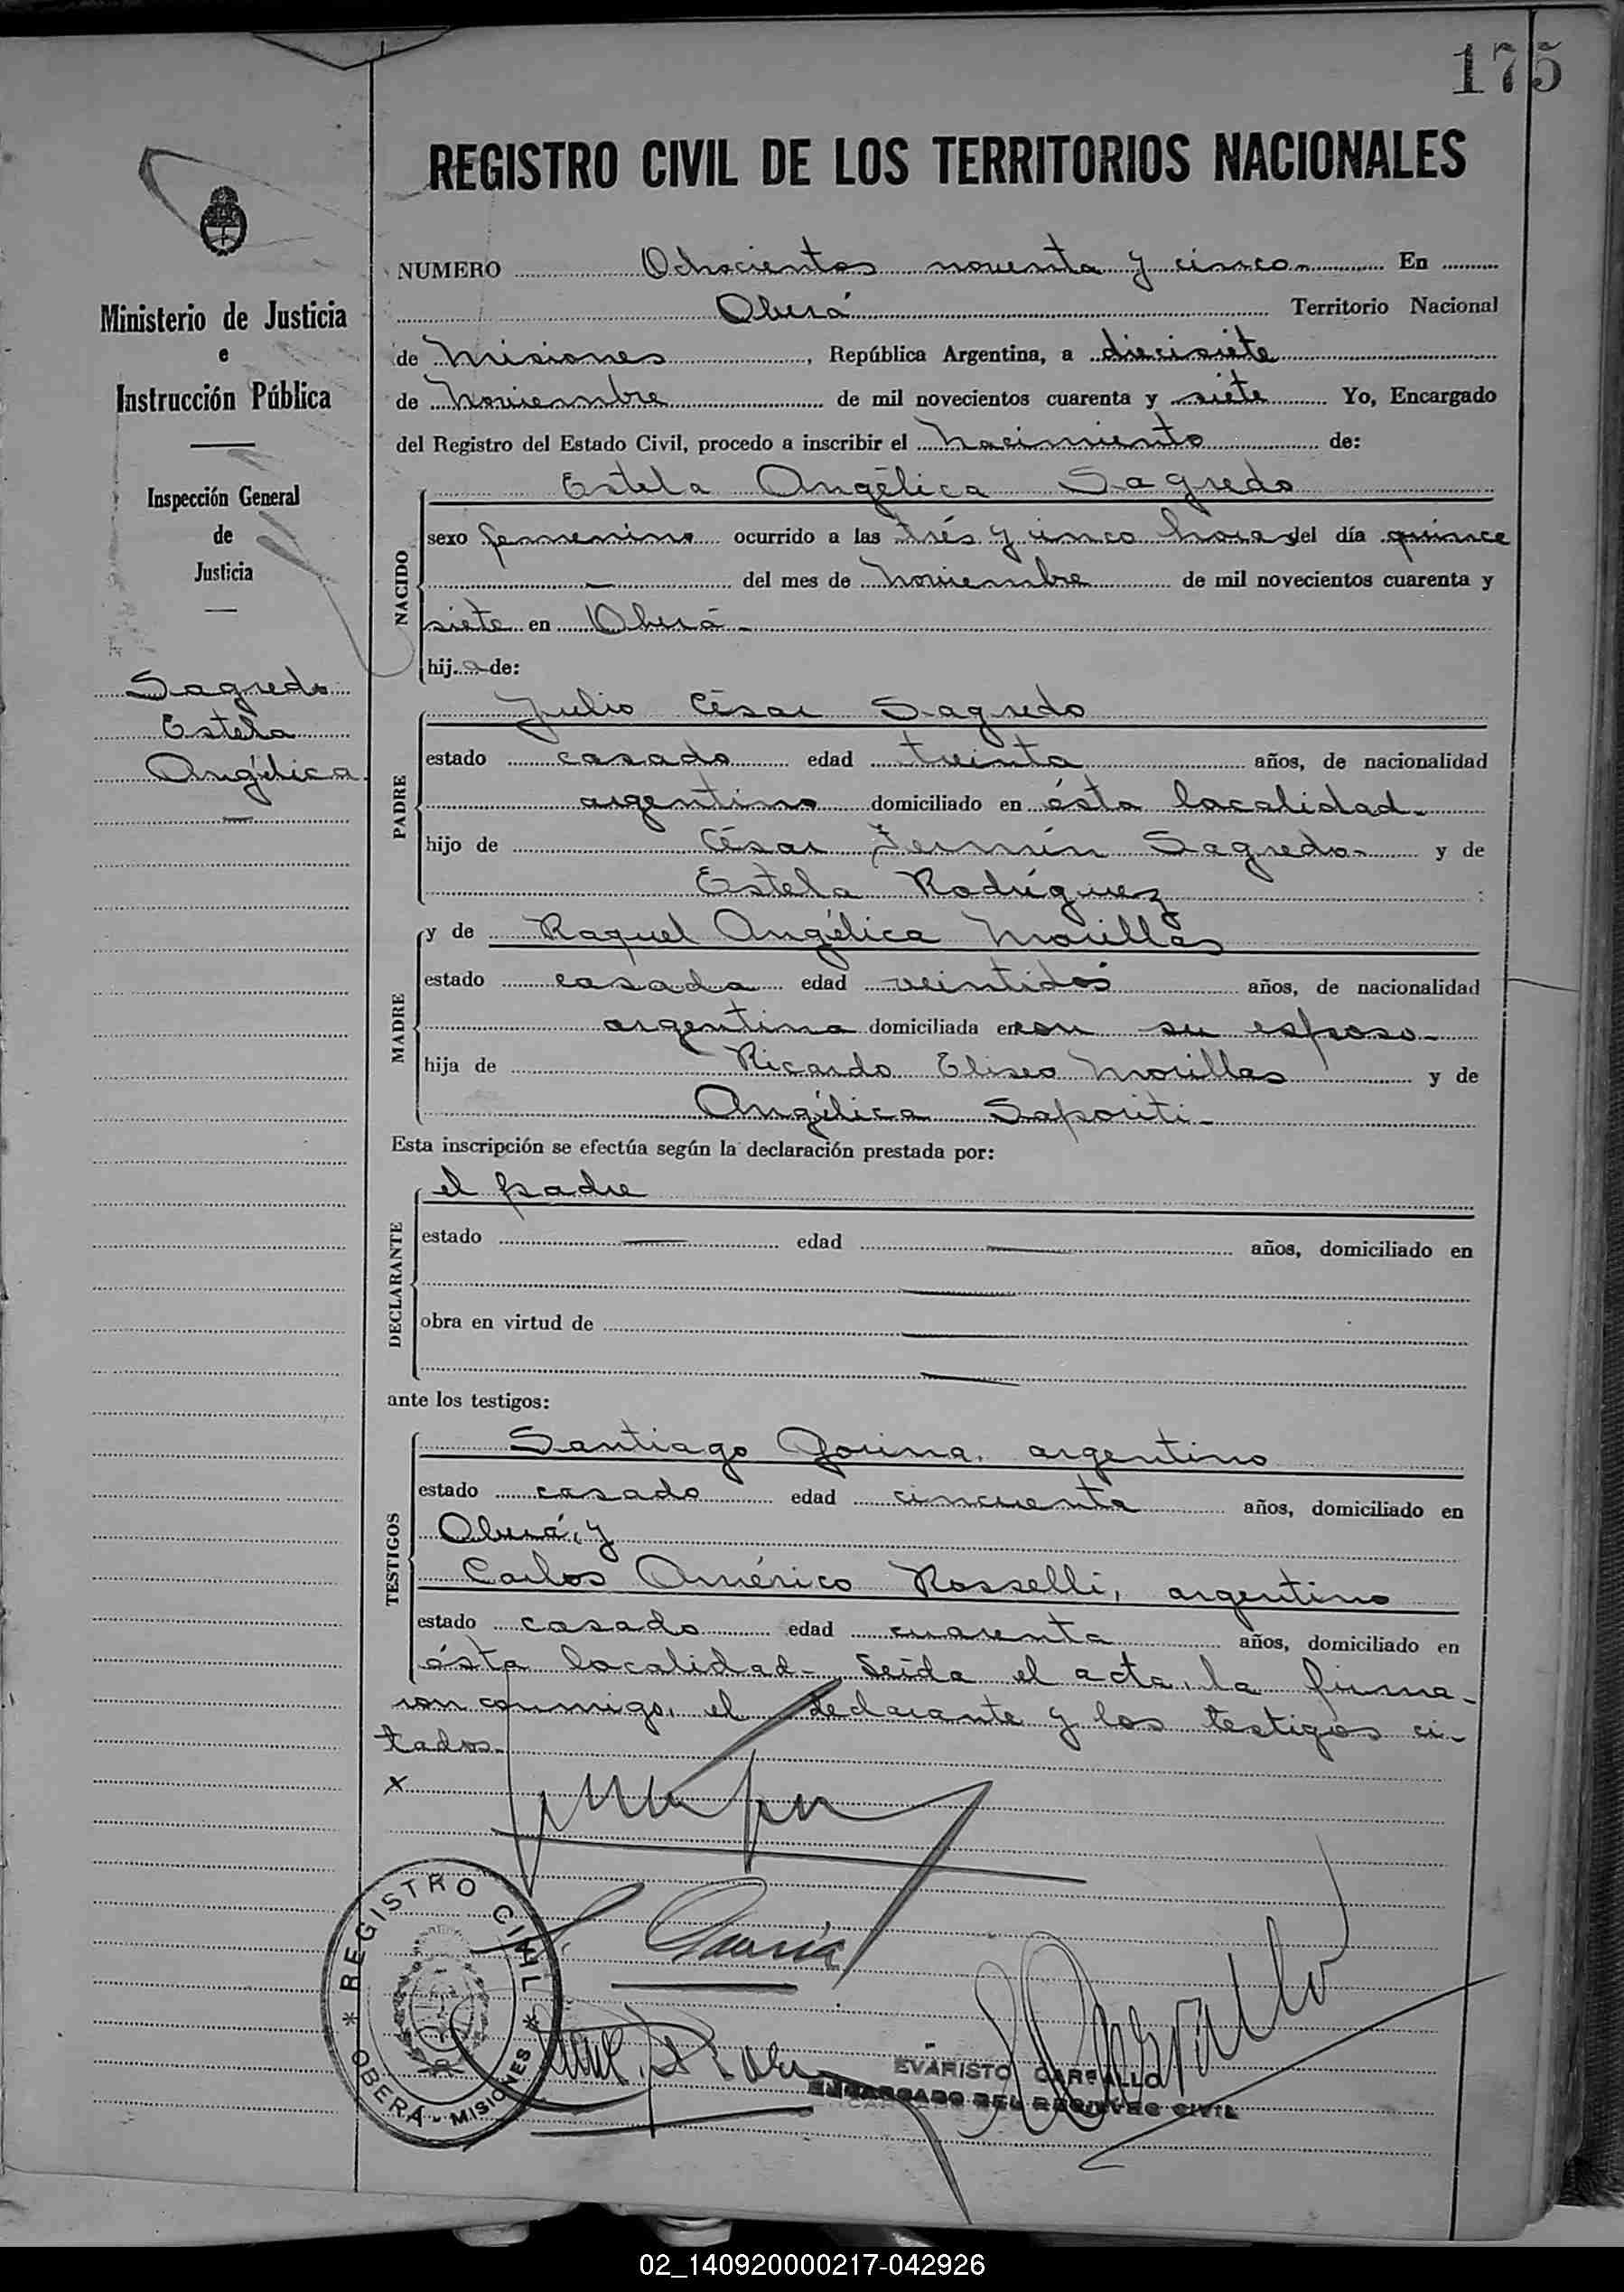 175
REGISTRO CIVIL DE LOS TERRITORIOS NACIONALES
Ministerio de Justicia
e
Instrucción Pública
Inspección General
de
Justicia
Sagredo
Estela
Angélica
NUMERO Ochocientos noventa y cinco.- En
Oberá Territorio Nacional
de Misiones, República Argentina, a diecisiete
de Noviembre de mil novecientos cuarenta y siete Yo, Encargado
del Registro del Estado Civil, procedo a inscribir el Nacimiento de:
NACIDO
Estela Angélica Sagredo
sexo femenino ocurrido a las trés y cinco horas del día quince
del mes de Noviembre de mil novecientos cuarenta y
siete en Oberá-
hij a de:
PADRE
Julio César Sagredo
estado casado edad treinta años, de nacionalidad
argentino domiciliado en ésta localidad-
hijo de César Fermín Sagredo- y de
Estela Rodríguez
MADRE
y de Raquel Angélica Morillas
estado casada edad veintidós años, de nacionalidad
argentina domiciliada en con su esposo-
hija de Ricardo Eliseo Morillas y de
Angélica Saporiti-
Esta inscripción se efectúa según la declaración prestada por:
DECLARANTE
el padre
estado — edad — años, domiciliado en
obra en virtud de
ante los testigos:
TESTIGOS
Santiago Gorina, argentino
estado casado edad cincuenta años, domiciliado en
Oberá, y
Carlos Américo Rosselli, argentino
estado casado edad cuarenta años, domiciliado en
ésta localidad- Leída el acta, la firma-
ron conmigo, el declarante y los testigos ci-
tados-
x
REGISTRO CIVIL
OBERÁ - MISIONES
EVARISTO CARBALLO
ENCARGADO DEL REGISTRO CIVIL
02_140920000217-042926